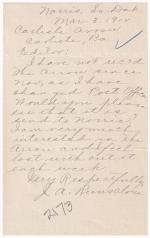 Norris, So. Dak
Mar. 3, 1912
Carlisle Arrow
Carlisle, Pa.
Editor:
I have not rec'd
the Arrow since
now, as I have
changed Post Office
Would you please
see that it is
send to Norris?
I am very much
interested in the
Arrow and feel
lost without it
each week.
Very Respectfully
J. A.
2173